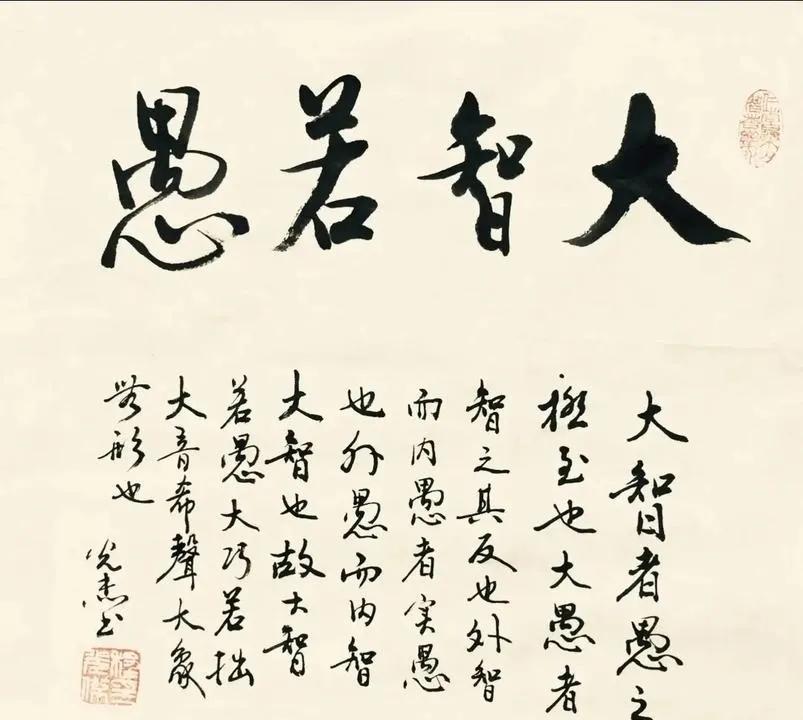 大智若愚
大智者愚之
極至也大愚者
智之其反也外智
而内愚者实愚
也外愚而内智
大智也故大智
若愚大巧若拙
大音希聲大象
無形也